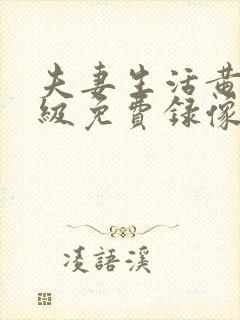 夫妻生活黄
級免費録像
凌語溪